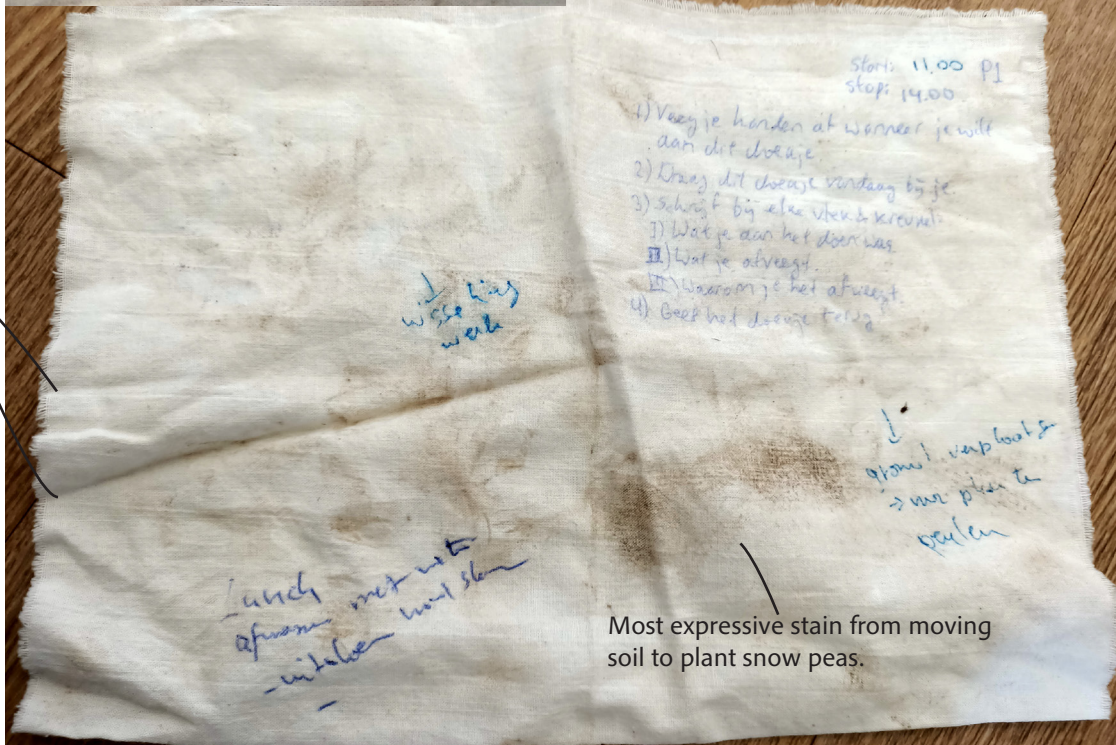 start: 11.00 P1
stop: 14.00
1) Veeg je handen af wanneer je wilt
aan dit doekje
2) Draag dit doekje vandaag bij je.
3) Schrijf bij elke vlek & kreukel:
I) Wat je aan het doen was
II) Wat je afveegt.
III) Waarom je het afveegt.
4) Geef het doekje terug
werk
grond verplaatsen
→ planten
peulen
Lunch
met
Most expressive stain from moving
soil to plant snow peas.